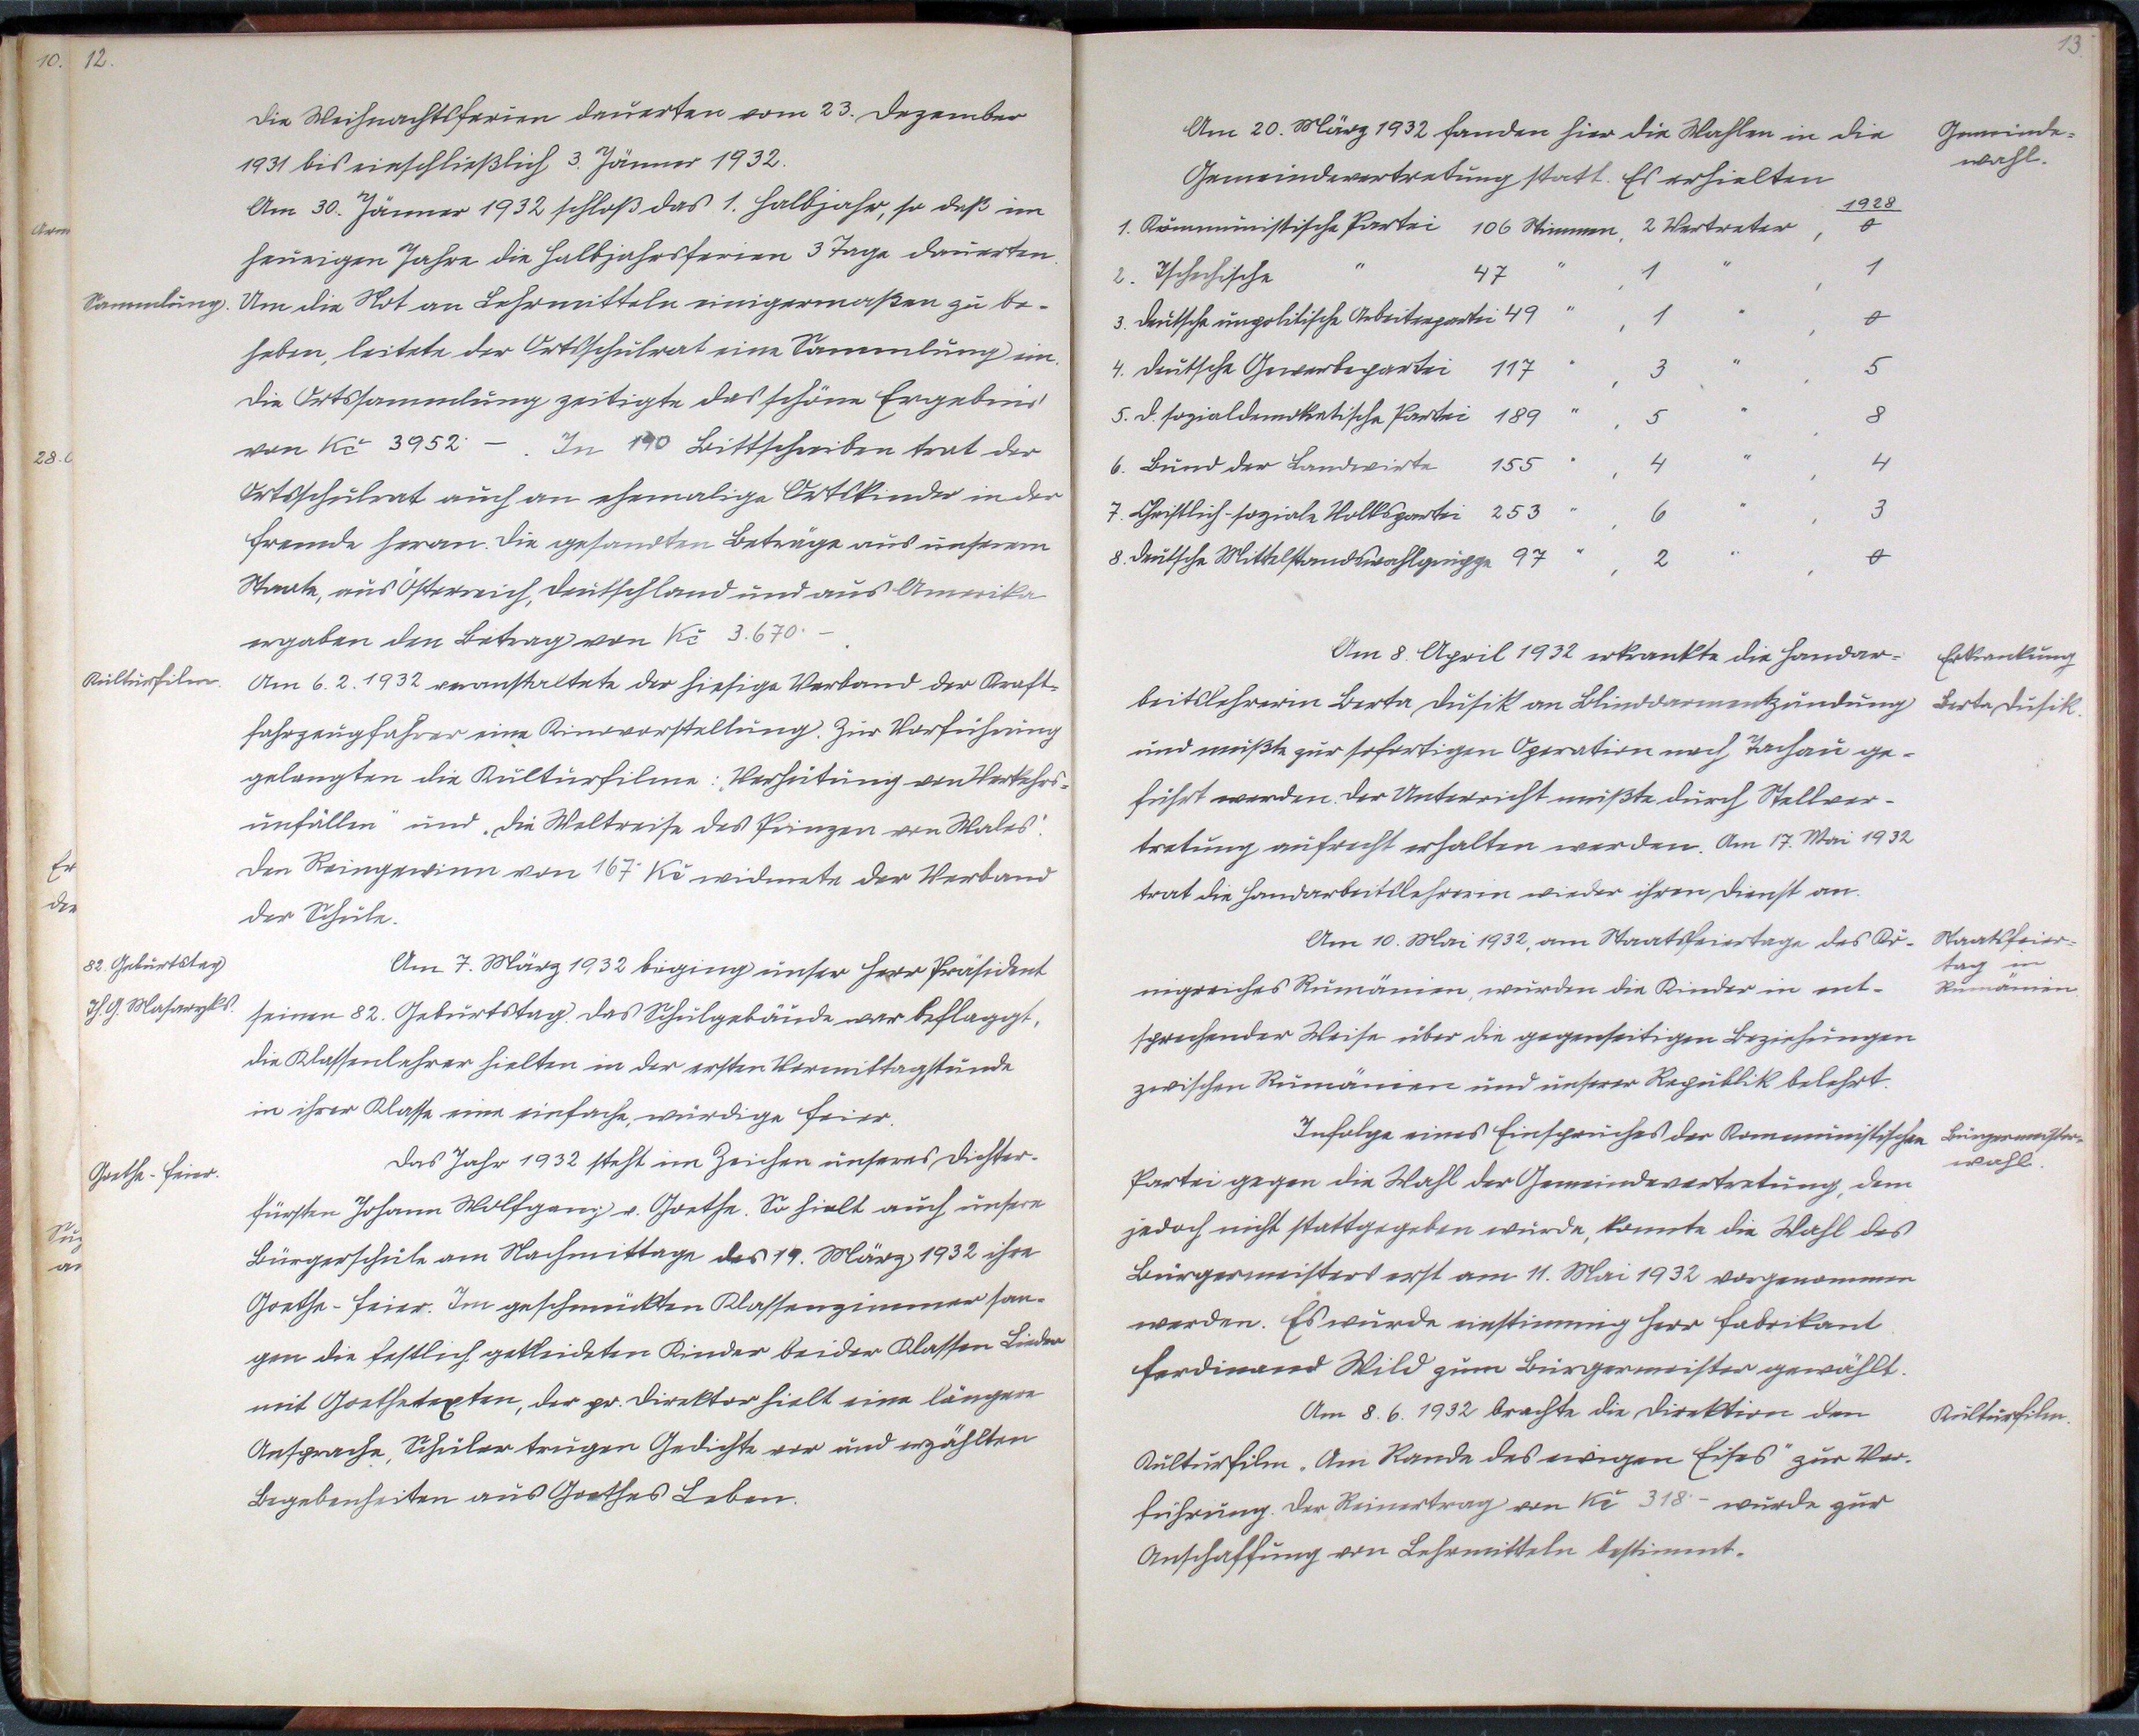 10. 12.
Die Weihnachtsferien dauerten vom 23. Dezember
1931 bis einschließlich 3. Jänner 1932.
Am 30. Jänner 1932 schloß das 1. Halbjahr, so daß im
heurigen Jahre die Halbjahrsferien 3 Tage dauerten.
Sammlung. Um die Not an Lehrmitteln einigermaßen zu be-
heben, leitete der Ortsschulrat eine Sammlung ein.
Die Ortssammlung zeitigte das schöne Ergebnis
von Kč 3952·– . In 190 Bittschreiben trat der
Ortsschulrat auch an ehemalige Ortskinder in der
Fremde heran. Die gesandten Beträge aus unserem
Staate, aus Österreich, Deutschland und aus Amerika
ergaben den Betrag von Kč 3.670·– .
Kulturfilm. Am 6. 2. 1932 veranstaltete der hiesige Verband der Kraft-
fahrzeugfahrer eine Kinovorstellung. Zur Vorführung
gelangten die Kulturfilme: „Verhütung von Verkehrs-
unfällen" und „Die Weltreise des Prinzen von Wales".
Den Reingewinn von 167·Kč widmete der Verband
der Schule.
82. Geburtstag Am 7. März 1932 beging unser Herr Präsident
Th. G. Masaryks. seinen 82. Geburtstag. Das Schulgebäude war beflaggt,
die Klassenlehrer hielten in der ersten Vormittagstunde
in ihrer Klasse eine einfache, würdige Feier.
Goethe-Feier. Das Jahr 1932 steht im Zeichen unseres Dichter-
fürsten Johann Wolfgang v. Goethe. So hielt auch unsere
Bürgerschule am Nachmittage des 19. März 1932 ihre
Goethe-Feier. Im geschmückten Klassenzimmer san-
gen die festlich gekleideten Kinder beider Klassen Lieder
mit Goethetexten, der pr. Direktor hielt eine längere
Ansprache, Schüler trugen Gedichte vor und erzählten
Begebenheiten aus Goethes Leben.
13.
Am 20. März 1932 fanden hier die Wahlen in die Gemeinde-
wahl.
Gemeindevertretung statt. Es erhielten
1928
1. Kommunistische Partei 106 Stimmen, 2 Vertreter , 0
2. Tschechische " 47 " , 1 " , 1
3. Deutsche unpolitische Arbeiterpartei 49 " , 1 " , 0
4. Deutsche Gewerbepartei 117 " , 3 " , 5
5. D. sozialdemokratische Partei 189 " , 5 " , 8
6. Bund der Landwirte 155 " , 4 " , 4
7. Christlich-soziale Volkspartei 253 " , 6 " , 3
8. Deutsche Mittelstandswahlgruppe 97 " , 2 " , 0
Am 8. April 1932 erkrankte die Handar- Erkrankung
beitslehrerin Berta Dusik an Blinddarmentzündung Berta Dusik.
und mußte zur sofortigen Operation nach Tachau ge-
führt werden. Der Unterricht mußte durch Stellver-
tretung aufrecht erhalten werden. Am 17. Mai 1932
trat die Handarbeitslehrerin wieder ihren Dienst an.
Am 10. Mai 1932, am Staatsfeiertage des Kö- Staatsfeier-
tag in
nigreiches Rumänien, wurden die Kinder in ent- Rumänien.
sprechender Weise über die gegenseitigen Beziehungen
zwischen Rumänien und unserer Republik belehrt.
Infolge eines Einspruches der Kommunistischen Bürgermeister-
wahl.
Partei gegen die Wahl der Gemeindevertretung, dem
jedoch nicht stattgegeben wurde, konnte die Wahl des
Bürgermeisters erst am 11. Mai 1932 vorgenommen
werden. Es wurde einstimmig Herr Fabrikant
Ferdinand Wild zum Bürgermeister gewählt.
Am 8. 6. 1932 brachte die Direktion den Kulturfilm.
Kulturfilm „Am Rande des ewigen Eises" zur Vor-
führung. Der Reinertrag von Kč 318·– wurde zur
Anschaffung von Lehrmitteln bestimmt.